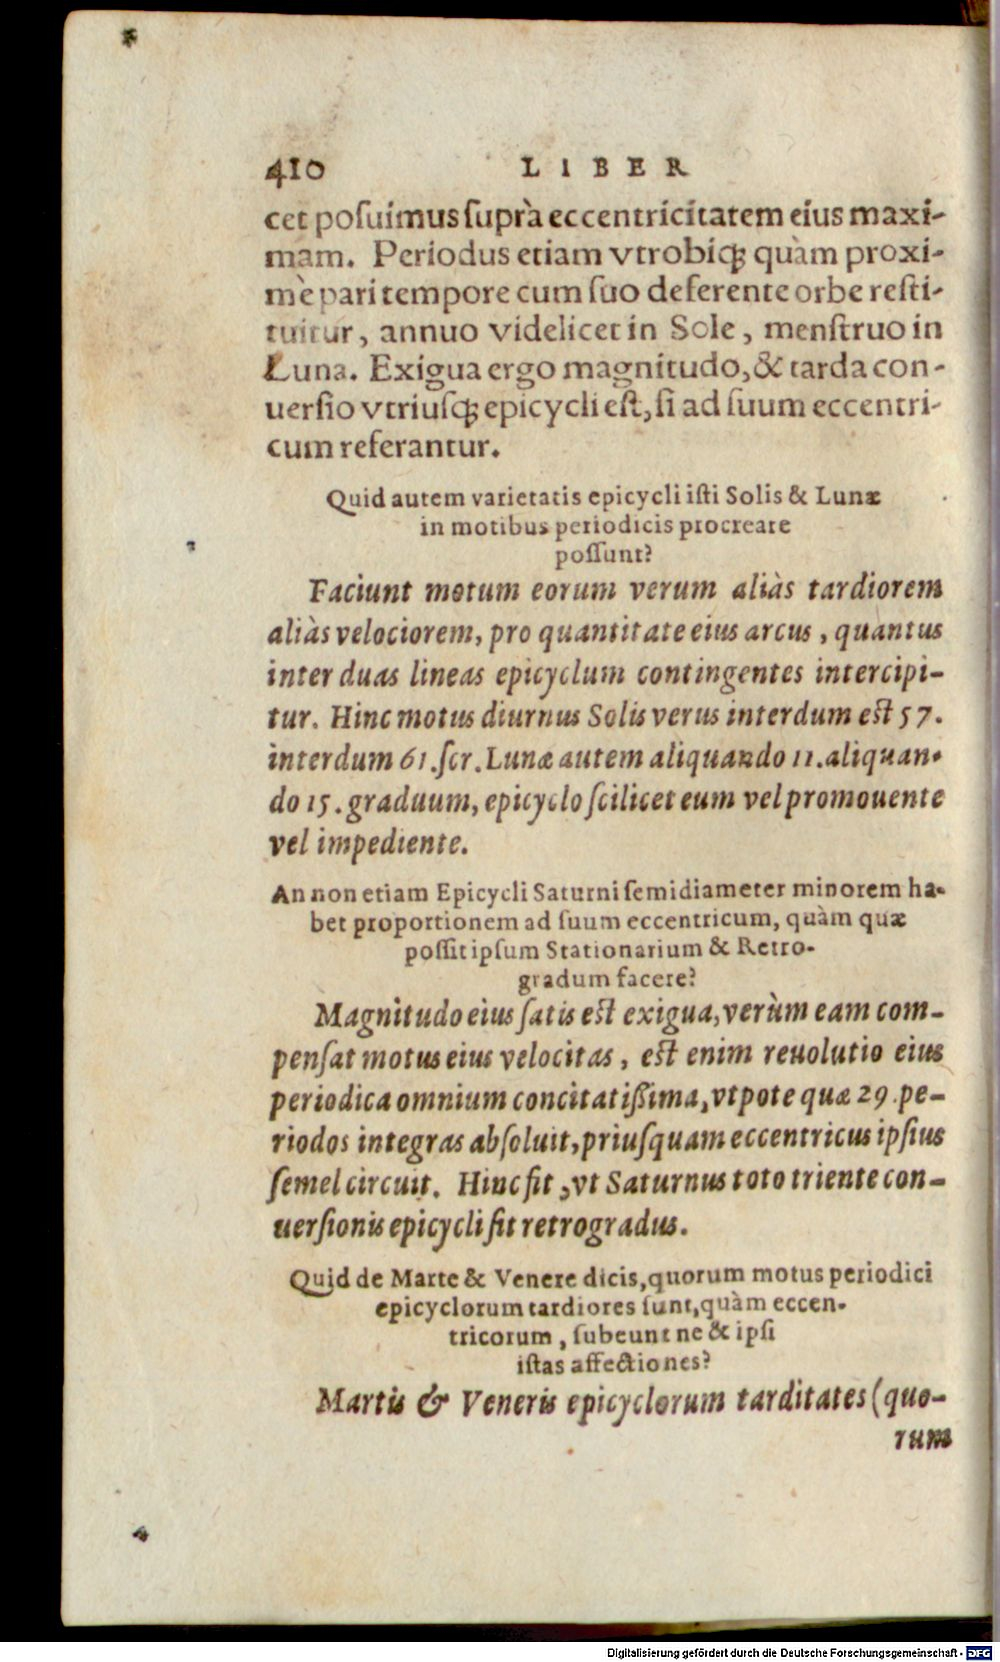 410 LIBER
cet poſuimus ſuprà eccentricitatem eius maxi-
mam. Periodus etiam vtrobiq; quàm proxi-
mè pari tempore cum ſuo deferente orbe reſti-
tuitur, annuo videlicet in Sole, menſtruo in
Luna. Exigua ergo magnitudo, & tarda con-
uerſio vtriuſq; epicycli eſt, ſi ad ſuum eccentri-
cum referantur.
Quid autem varietatis epicycli iſti Solis & Lunæ
in motibus periodicis procreare
poſſunt?
Faciunt motum eorum verum aliàs tardiorem
aliàs velociorem, pro quantitate eius arcus, quantus
inter duas lineas epicyclum contingentes intercipi-
tur. Hinc motus diurnus Solis verus interdum eſt 57.
interdum 61. ſcr. Lunæ autem aliquando 11. aliquan-
do 15. graduum, epicyclo ſcilicet eum vel promouente
vel impediente.
An non etiam Epicycli Saturni ſemidiameter minorem ha-
bet proportionem ad ſuum eccentricum, quàm quæ
poſſit ipſum Stationarium & Retro-
gradum facere?
Magnitudo eius ſatis eſt exigua, verùm eam com-
penſat motus eius velocitas, eſt enim reuolutio eius
periodica omnium concitatiſſima, vtpote quæ 29. pe-
riodos integras abſoluit, priuſquam eccentricus ipſius
ſemel circuit. Hinc fit, vt Saturnus toto triente con-
uerſionis epicycli fit retrogradus.
Quid de Marte & Venere dicis, quorum motus periodici
epicyclorum tardiores ſunt, quàm eccen-
tricorum, ſubeunt ne & ipſi
iſtas affectiones?
Martis & Veneris epicyclorum tarditates (quo-
rum
Digitalisierung gefördert durch die Deutsche Forschungsgemeinschaft - DFG